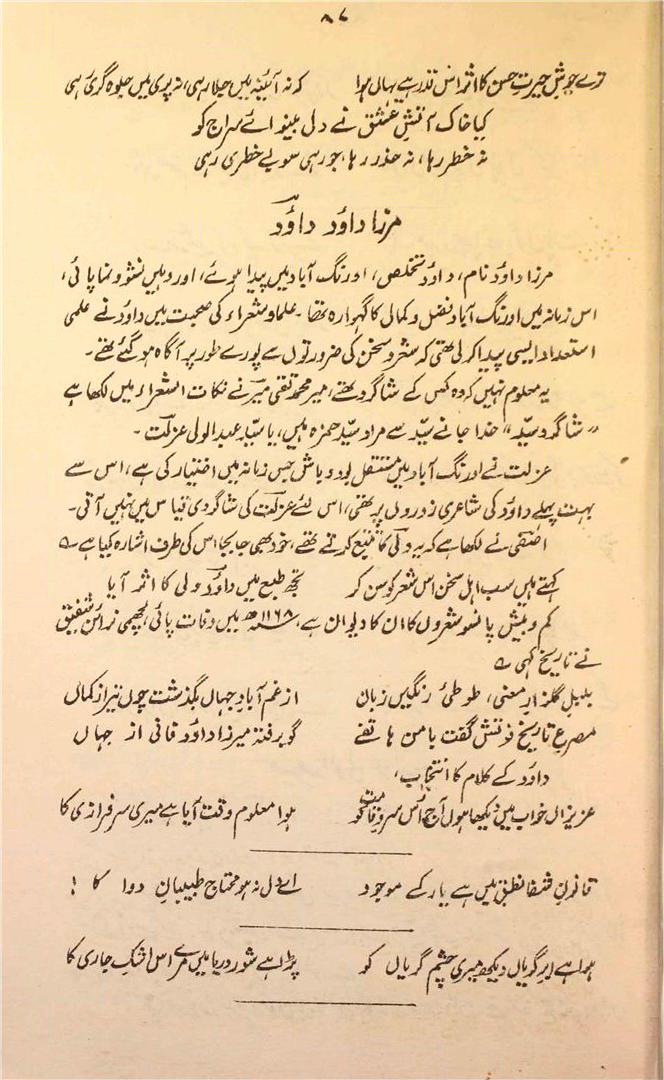 ۸۷
ترے جوشِ حیرتِ حسن کا اثر اس قدر ہے یہاں ہوا کہ نہ آئینہ میں جلا رہی، نہ پری میں جلوہ گری رہی
کیا خاک آتشِ عشق نے دلِ بینوائے سراج کو
نہ خطر رہا، نہ حذر رہا، جو رہی سو بے خطری رہی
مرزا داؤد داؤد
مرزا داؤد نام، داؤد تخلص، اورنگ آباد میں پیدا ہوئے، اور وہیں نشو و نما پائی،
اس زمانہ میں اورنگ آباد فضل و کمال کا گہوارہ تھا۔ علما و شعراء کی صحبت میں داؤد نے علمی
استعداد ایسی پیدا کر لی تھی کہ شعر و سخن کی ضرورتوں سے پورے طور پر آگاہ ہو گئے تھے۔
یہ معلوم نہیں کہ وہ کس کے شاگرد تھے، میر محمد تقی میر نے نکات الشعراء میں لکھا ہے
"شاگرد سید" خدا جانے سید سے مراد سید حمزہ ہیں، یا سید عبد الولی عزلت۔
عزلت نے اورنگ آباد میں مستقل بود و باش جس زمانہ میں اختیار کی ہے، اس سے
بہت پہلے داؤد کی شاعری زوروں پر تھی، اس لئے عزلت کی شاگردی قیاس میں نہیں آتی۔
نے لکھا ہے کہ یہ ولی کا تتبع کرتے تھے، خود بھی جا بجا اس کی طرف اشارہ کیا ہے ؎
کہتے ہیں سب اہلِ سخن اس شعر کو سن کر تجھ طبع میں داؤد ولی کا اثر آیا
کم و بیش پانسو شعروں کا ان کا دیوان ہے، ۱۱۶۸ھ میں وفات پائی، لچھمی نرائن شفیق
نے تاریخ کہی ؎
بلبلِ گلزارِ معنی، طوطیِ رنگیں زبان از غم آبادِ جہاں بگذشت چوں تیر از کماں
مصرعِ تاریخ فوتش گفت با من ہاتفے گو برفتہ میرزا داؤد فانی از جہاں
داؤد کے کلام کا انتخاب،
عزیزاں خواب میں دیکھا ہوں آج اُس سروِ قامت کو ہوا معلوم وقت آیا ہے میری سرفرازی کا
قانونِ شفا نطق میں ہے یار کے موجود اے دل نہ ہو محتاج طبیبانِ دوا کا!
ہوا ہے ابر گریاں دیکھ میری چشمِ گریاں کو پڑا ہے شور دریا میں مرے اس اشکِ جاری کا